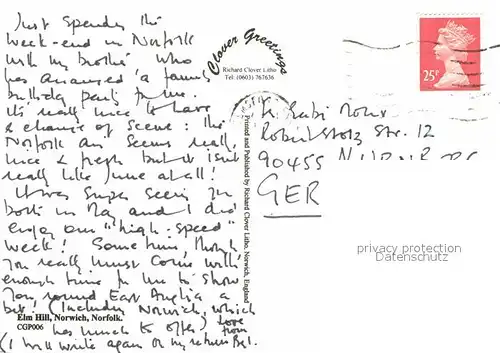 Just Spending the
week-end in Norfolk
with my brother who
has arranged a family
birthday party for me.
It's really nice to have
a change of scene: the
Norfolk air seems really
nice & fresh but it isn't
really like June at all!
It was super seeing you
both in May and I did
enjoy our "high-speed"
week! Sometime though
you really must come with
enough time for me to show
you round East Anglia a
bit! (Including Norwich, which
has much to offer) Love
from
(I will write again on my return
Elm Hill, Norwich, Norfolk.
CGP006
Clover Greetings
Richard Clover Litho
Tel: (0603) 767636
Printed and Published by Richard Clover Litho, Norwich, England
25P
Robert Stolz Str. 12
90455
GER
privacy protection
Datenschutz